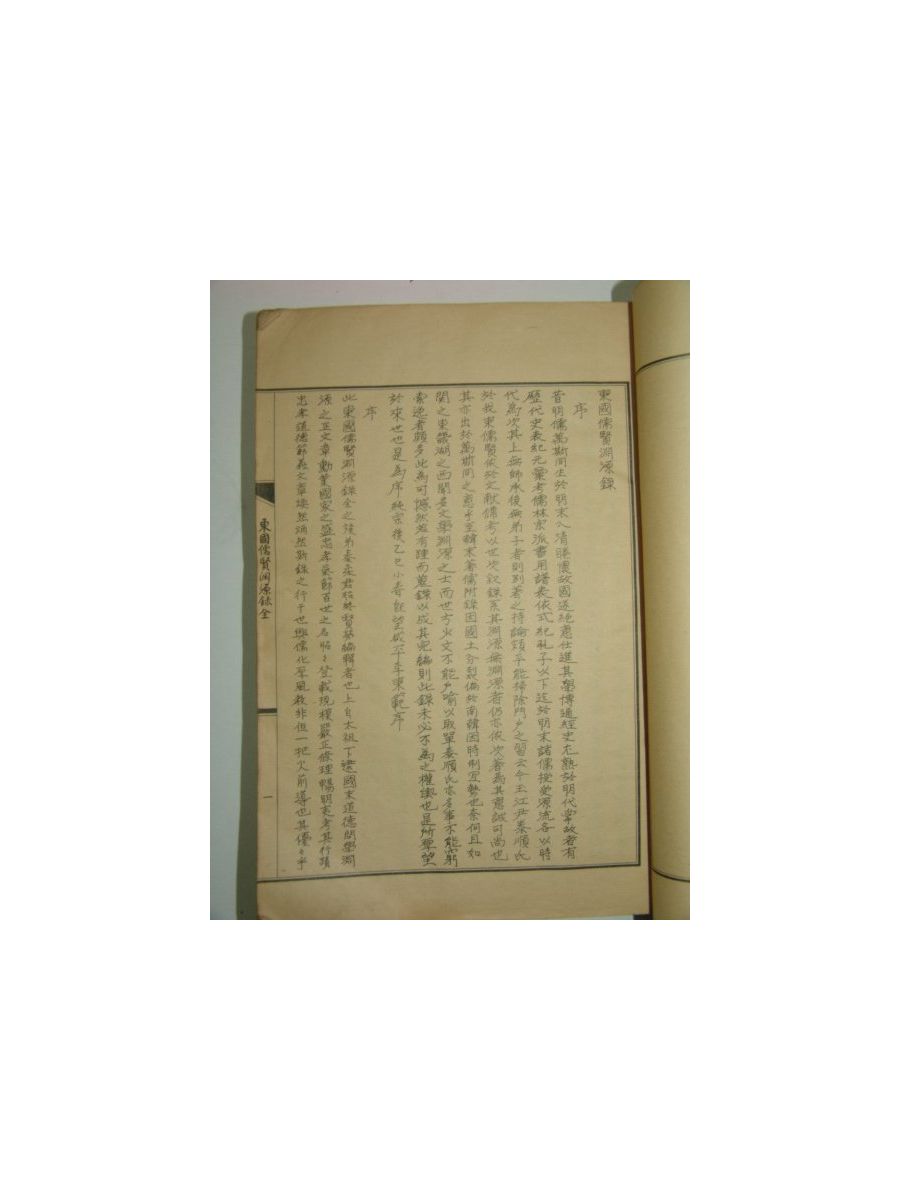 東國儒賢淵源錄
序
昔明儒萬斯同生於明末入清睠懷故國遂絕意仕進其學博通經史尤熟於明代掌故者有
歷代史表紀元彙考儒林宗派書用譜表依式紀孔子以下迄於明末諸儒授受源流各以時
代爲次其上無師承後無弟子者則別著之持論頗平能掃除門戶之習云今玉江尹泰順氏
於我東儒賢依於文獻備考以世次敍錄系其淵源無淵源者仍亦依次著爲其意誠可尚也
其亦出於萬斯同之意乎至韓末著儒附錄因國土分裂偏於南韓因時制宜勢也奈何且如
關之東錦湖之西聞多文學淵源之士而世方火文不能戶喻以取單泰順氏亦多事不能窮
索逸者頗多此爲可憾然若有踵而蒐錄以成其完編則此錄未必不爲之權輿也是所望
於來世也是爲序純宗後乙巳小春旣望咸平李東範序
序
此東國儒賢淵源錄全之 弟泰 君 編輯者也上自太祖下逮國末道德問學淵
源之正文章勳業國家之盛忠孝 節百世之名昭〻登載規模嚴正條理暢明 考其行蹟
忠孝道德節義文章 然炳然斯錄之行于世興儒化厚風敎非但一把火前導也其優〻乎
東國儒賢淵源錄全
一